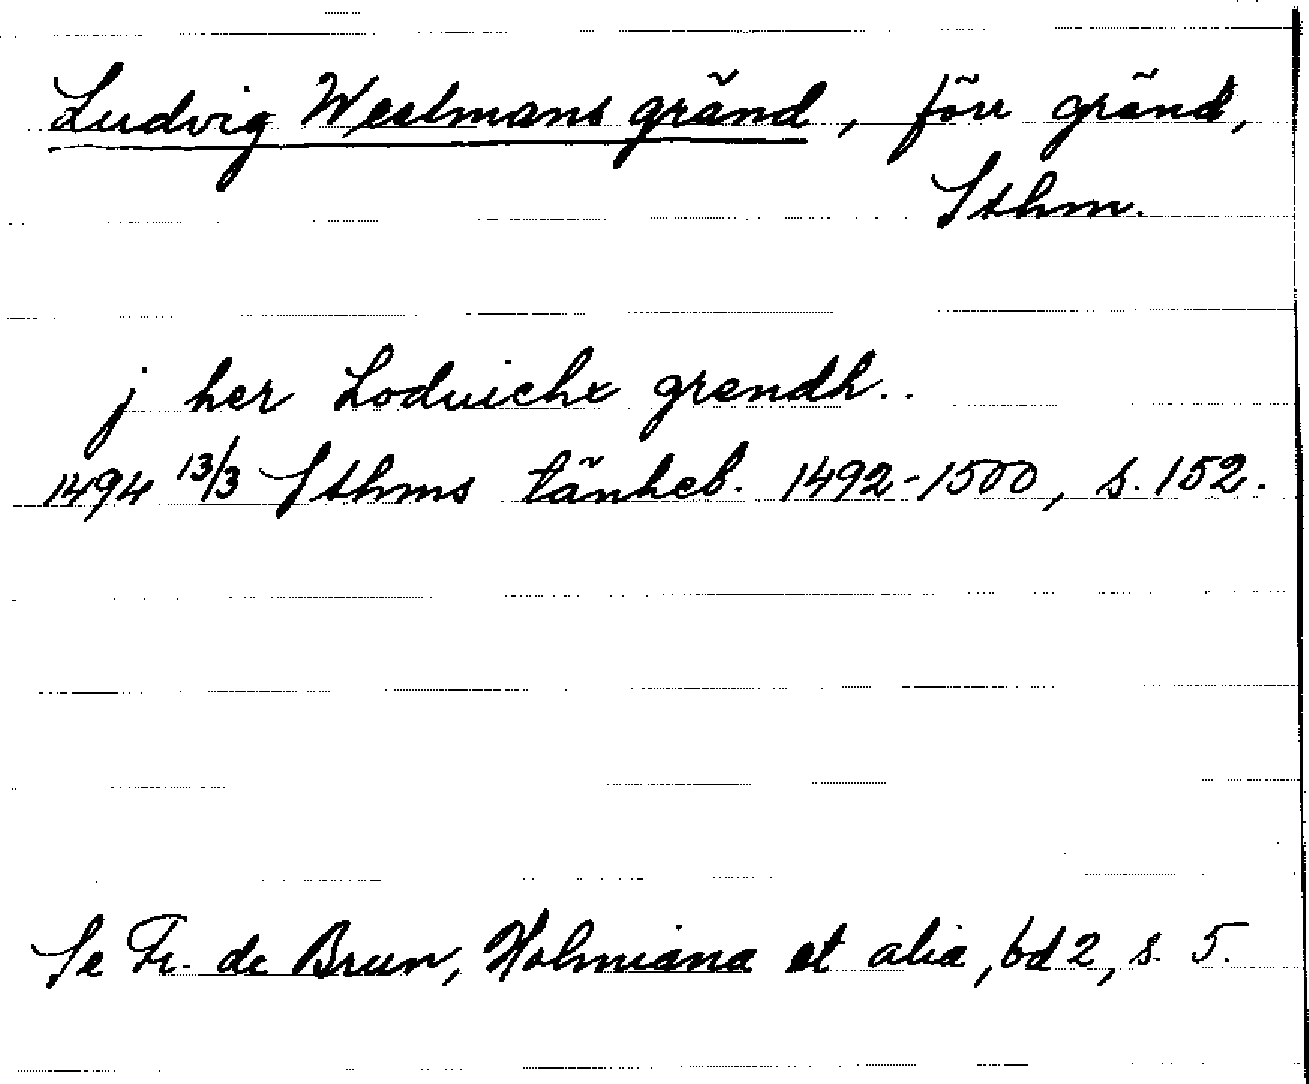 Ludvig Westmans gränd, förr gränd,
Sthm.
j her Loduichx grendh..
1494 13/3 Sthms tänkeb. 1492-1500, s. 152.
Se Fr. de Brun, Holmiana et alia, bd 2, s. 5.